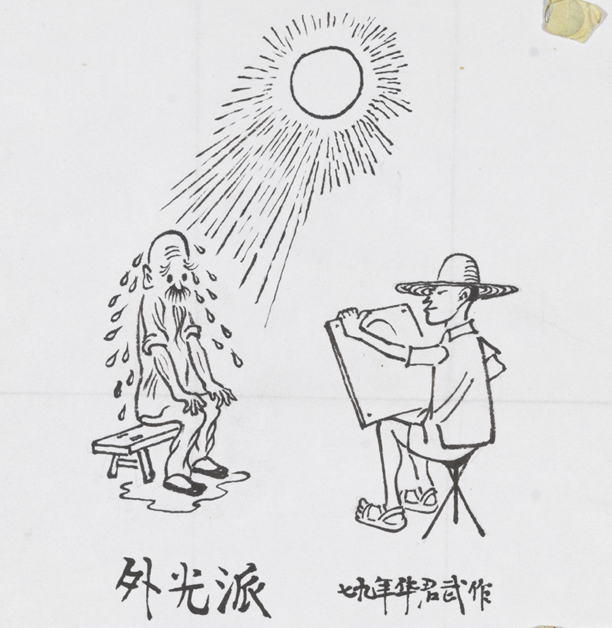 外光派
七九年华君武作